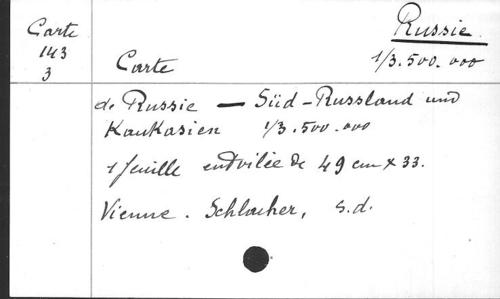 Carte
143
3
Russie
1/3.500.000
Carte
de Russie — Süd-Russland und
Kaukasien 1/3.500.000
1 feuille entoilée de 49 cm x 33.
Vienne. Schlacher, s.d.